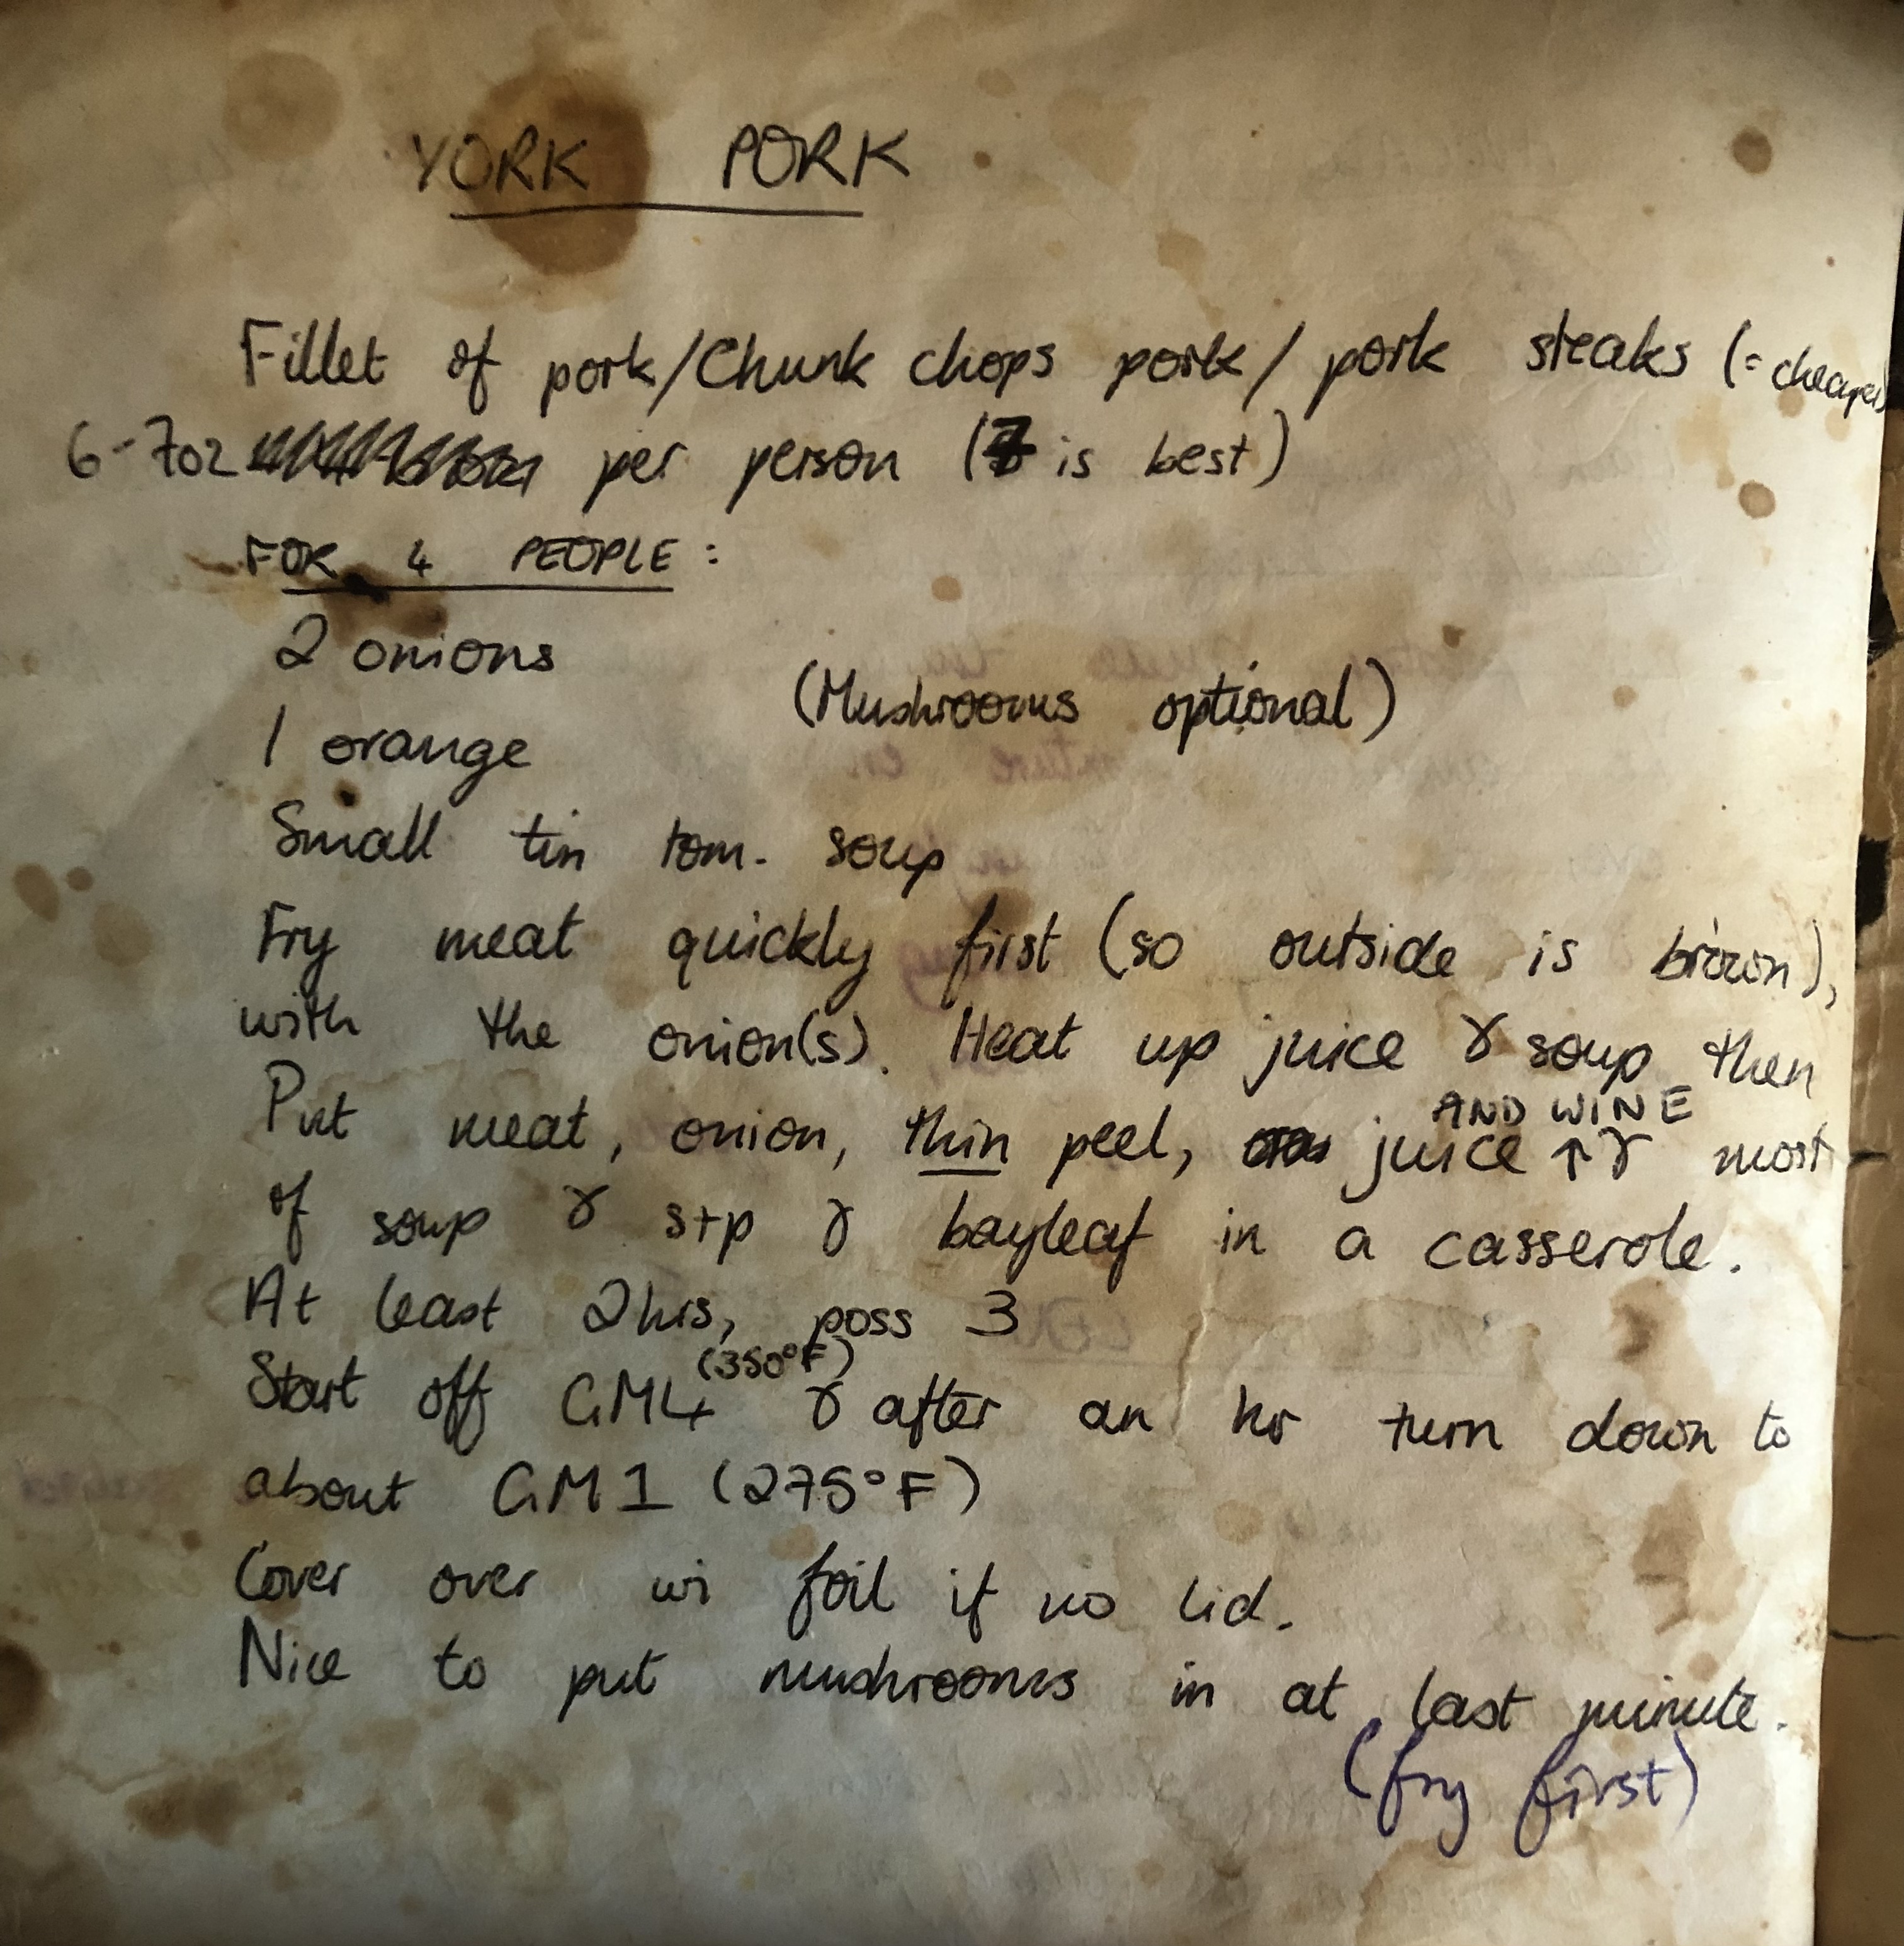 YORK PORK
Fillet of pork/Chunk chops pork/ pork steaks (= cheaper)
6-7oz per person (7 is best)
FOR 4 PEOPLE:
2 onions
(Mushrooms optional)
1 orange
Small tin tom. soup
Fry meat quickly first (so outside is brown),
with the onion(s). Heat up juice & soup then
AND WINE
Put meat, onion, thin peel, juice ↑ & most
of soup & s+p & bayleaf in a casserole.
At least 2hrs, poss 3
(350°F)
Start off GM4 & after an hr turn down to
about GM1 (275°F)
Cover over wi foil if no lid.
Nice to put mushrooms in at last minute.
(fry first)